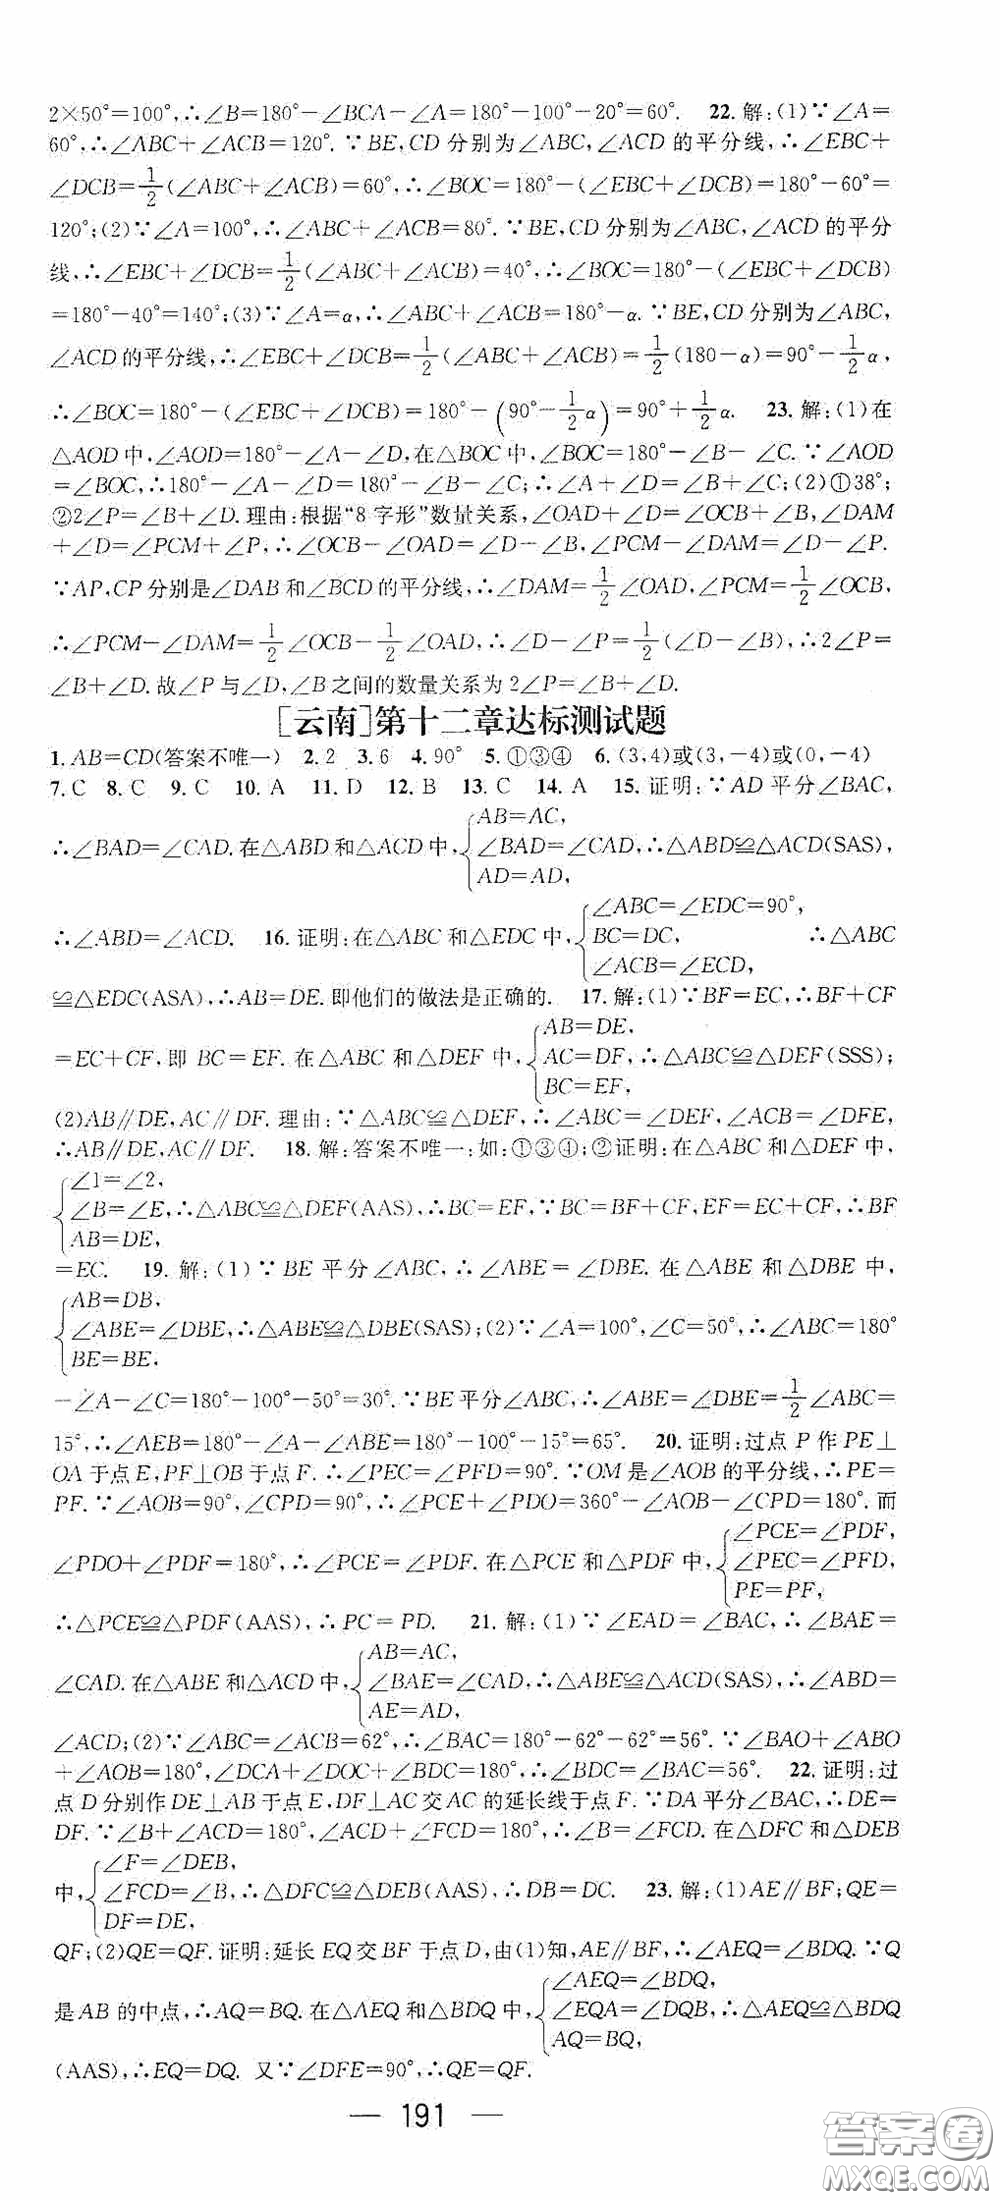 2×50°=100°,∴∠B=180°-∠BCA-∠A=180°-100°-20°=60°. 22.解:(1)∵∠A=
60°,∴∠ABC+∠ACB=120°.∵BE,CD分别为∠ABC,∠ACD的平分线,∴∠EBC+
∠DCB=1/2(∠ABC+∠ACB)=60°,∴∠BOC=180°-(∠EBC+∠DCB)=180°-60°=
120°;(2)∵∠A=100°,∴∠ABC+∠ACB=80°.∵BE,CD分别为∠ABC,∠ACD的平分
线,∴∠EBC+∠DCB=1/2(∠ABC+∠ACB)=40°,∴∠BOC=180°-(∠EBC+∠DCB)
=180°-40°=140°;(3)∵∠A=α,∴∠ABC+∠ACB=180°-α.∵BE,CD分别为∠ABC,
∠ACD的平分线,∴∠EBC+∠DCB=1/2(∠ABC+∠ACB)=1/2(180-α)=90°-1/2α,
∴∠BOC=180°-(∠EBC+∠DCB)=180°-(90°-1/2α)=90°+1/2α. 23.解:(1)在
△AOD中,∠AOD=180°-∠A-∠D,在△BOC中,∠BOC=180°-∠B-∠C.∵∠AOD
=∠BOC,∴180°-∠A-∠D=180°-∠B-∠C;∴∠A+∠D=∠B+∠C;(2)①38°;
②2∠P=∠B+∠D.理由:根据“8字形”数量关系,∠OAD+∠D=∠OCB+∠B,∠DAM
+∠D=∠PCM+∠P,∴∠OCB-∠OAD=∠D-∠B,∠PCM-∠DAM=∠D-∠P.
∵AP,CP分别是∠DAB和∠BCD的平分线,∴∠DAM=1/2∠OAD,∠PCM=1/2∠OCB,
∴∠PCM-∠DAM=1/2∠OCB-1/2∠OAD,∴∠D-∠P=1/2(∠D-∠B),∴2∠P=
∠B+∠D.故∠P与∠D,∠B之间的数量关系为2∠P=∠B+∠D.
[云南]第十二章达标测试题
1.AB=CD(答案不唯一) 2.2 3.6 4.90° 5.①③④ 6.(3,4)或(3,-4)或(0,-4)
7.C 8.C 9.C 10.A 11.D 12.B 13.C 14.A 15.证明:∵AD平分∠BAC,
AB=AC,
∴∠BAD=∠CAD.在△ABD和△ACD中,{∠BAD=∠CAD,∴△ABD≌△ACD(SAS),
AD=AD,
∠ABC=∠EDC=90°,
∴∠ABD=∠ACD. 16.证明:在△ABC和△EDC中,{BC=DC, ∴△ABC
∠ACB=∠ECD,
≌△EDC(ASA),∴AB=DE.即他们的做法是正确的. 17.解:(1)∵BF=EC,∴BF+CF
AB=DE,
=EC+CF,即BC=EF.在△ABC和△DEF中,{AC=DF,∴△ABC≌△DEF(SSS);
BC=EF,
(2)AB∥DE,AC∥DF.理由:∵△ABC≌△DEF,∴∠ABC=∠DEF,∠ACB=∠DFE,
∴AB∥DE,AC∥DF. 18.解:答案不唯一;如:①③④;②证明:在△ABC和△DEF中,
∠1=∠2,
{∠B=∠E,∴△ABC≌△DEF(AAS),∴BC=EF,∵BC=BF+CF,EF=EC+CF,∴BF
AB=DE,
=EC. 19.解:(1)∵BE平分∠ABC,∴∠ABE=∠DBE.在△ABE和△DBE中,
AB=DB,
{∠ABE=∠DBE,∴△ABE≌△DBE(SAS);(2)∵∠A=100°,∠C=50°,∴∠ABC=180°
BE=BE.
-∠A-∠C=180°-100°-50°=30°.∵BE平分∠ABC,∴∠ABE=∠DBE=1/2∠ABC=
15°,∴∠AEB=180°-∠A-∠ABE=180°-100°-15°=65°. 20.证明:过点P作PE⊥
OA于点E,PF⊥OB于点F.∴∠PEC=∠PFD=90°.∵OM是∠AOB的平分线,∴PE=
PF.∵∠AOB=90°,∠CPD=90°,∴∠PCE+∠PDO=360°-∠AOB-∠CPD=180°.而
∠PCE=∠PDF,
∠PDO+∠PDF=180°,∴∠PCE=∠PDF.在△PCE和△PDF中,{∠PEC=∠PFD,
PE=PF,
∴△PCE≌△PDF(AAS),∴PC=PD. 21.解:(1)∵∠EAD=∠BAC,∴∠BAE=
AB=AC,
∠CAD.在△ABE和△ACD中,{∠BAE=∠CAD,∴△ABE≌△ACD(SAS),∴∠ABD=
AE=AD,
∠ACD;(2)∵∠ABC=∠ACB=62°,∴∠BAC=180°-62°-62°=56°.∵∠BAO+∠ABO
+∠AOB=180°,∠DCA+∠DOC+∠BDC=180°,∴∠BDC=∠BAC=56°. 22.证明:过
点D分别作DE⊥AB于点E,DF⊥AC交AC的延长线于点F.∵DA平分∠BAC,∴DE=
DF.∵∠B+∠ACD=180°,∠ACD+∠FCD=180°,∴∠B=∠FCD.在△DFC和△DEB
∠F=∠DEB,
中,{∠FCD=∠B,∴△DFC≌△DEB(AAS),∴DB=DC. 23.解:(1)AE∥BF;QE=
DF=DE,
QF;(2)QE=QF.证明:延长EQ交BF于点D,由(1)知,AE∥BF,∴∠AEQ=∠BDQ.∵Q
∠AEQ=∠BDQ,
是AB的中点,∴AQ=BQ.在△AEQ和△BDQ中,{∠EQA=∠DQB,∴△AEQ≌△BDQ
AQ=BQ,
(AAS),∴EQ=DQ.又∵∠DFE=90°,∴QE=QF.
— 191 —
答案圈
MXQE.COM